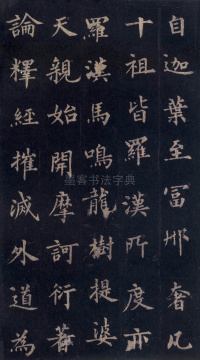 自迦葉至富那奢凡
十祖皆羅漢所度亦
羅漢馬鳴龍樹提婆
天親始開摩訶衍著
論釋經摧滅外道為
墨客书法字典